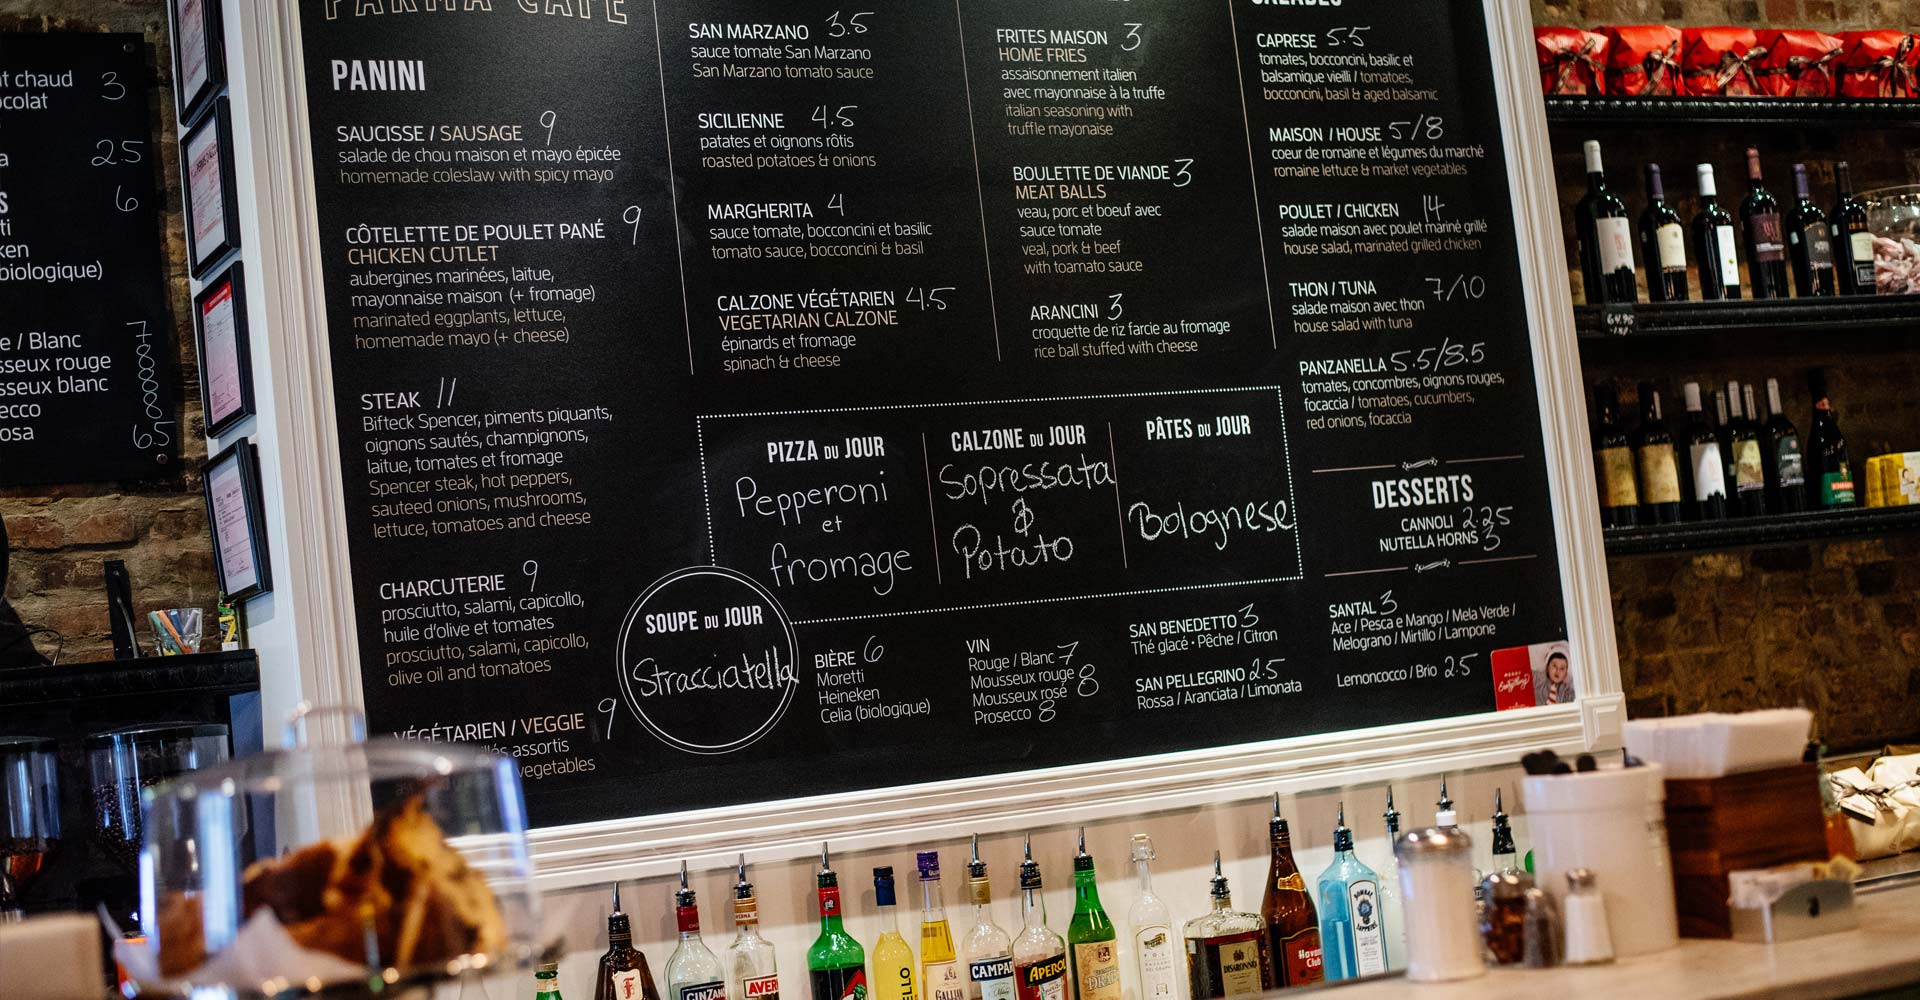 PARMA CAFÉ
PANINI
SAUCISSE / SAUSAGE 9
salade de chou maison et mayo épicée
homemade coleslaw with spicy mayo
CÔTELETTE DE POULET PANÉ 9
CHICKEN CUTLET
aubergines marinées, laitue,
mayonnaise maison (+ fromage)
marinated eggplants, lettuce,
homemade mayo (+ cheese)
STEAK 11
Bifteck Spencer, piments piquants,
oignons sautés, champignons,
laitue, tomates et fromage
Spencer steak, hot peppers,
sauteed onions, mushrooms,
lettuce, tomatoes and cheese
CHARCUTERIE 9
prosciutto, salami, capicollo,
huile d'olive et tomates
prosciutto, salami, capicollo,
olive oil and tomatoes
VÉGÉTARIEN / VEGGIE 9
assortis
vegetables
SAN MARZANO 3.5
sauce tomate San Marzano
San Marzano tomato sauce
SICILIENNE 4.5
patates et oignons rôtis
roasted potatoes & onions
MARGHERITA 4
sauce tomate, bocconcini et basilic
tomato sauce, bocconcini & basil
CALZONE VÉGÉTARIEN 4.5
VEGETARIAN CALZONE
épinards et fromage
spinach & cheese
FRITES MAISON 3
HOME FRIES
assaisonnement italien
avec mayonnaise à la truffe
italian seasoning with
truffle mayonaise
BOULETTE DE VIANDE 3
MEAT BALLS
veau, porc et boeuf avec
sauce tomate
veal, pork & beef
with toamato sauce
ARANCINI 3
croquette de riz farcie au fromage
rice ball stuffed with cheese
SALADES
CAPRESE 5.5
tomates, bocconcini, basilic et
balsamique vieilli / tomatoes,
bocconcini, basil & aged balsamic
MAISON / HOUSE 5/8
coeur de romaine et légumes du marché
romaine lettuce & market vegetables
POULET / CHICKEN 14
salade maison avec poulet mariné grillé
house salad, marinated grilled chicken
THON / TUNA 7/10
salade maison avec thon
house salad with tuna
PANZANELLA 5.5/8.5
tomates, concombres, oignons rouges,
focaccia / tomatoes, cucumbers,
red onions, focaccia
DESSERTS
CANNOLI 2.25
NUTELLA HORNS 3
PIZZA DU JOUR
Pepperoni
et
fromage
CALZONE DU JOUR
Sopressata
&
Potato
PÂTES DU JOUR
Bolognese
SOUPE DU JOUR
Stracciatella
BIÈRE 6
Moretti
Heineken
Celia (biologique)
VIN
Rouge / Blanc 7
Mousseux rouge 8
Mousseux rosé 8
Prosecco 8
SAN BENEDETTO 3
Thé glacé • Pêche / Citron
SAN PELLEGRINO 2.5
Rossa / Aranciata / Limonata
SANTAL 3
Ace / Pesca e Mango / Mela Verde /
Melograno / Mirtillo / Lampone
Lemoncocco / Brio 2.5
t chaud 3
ocolat
a 2.5
S 6
ti
ken
biologique)
e / Blanc 7
sseux rouge 8
sseux blanc 8
ecco 8
osa 6.5
64.95
CINZANO
AVERNA
CAMPARI
APEROL
DISARONNO
Havana
Club
BOMBAY
SAPPHIRE